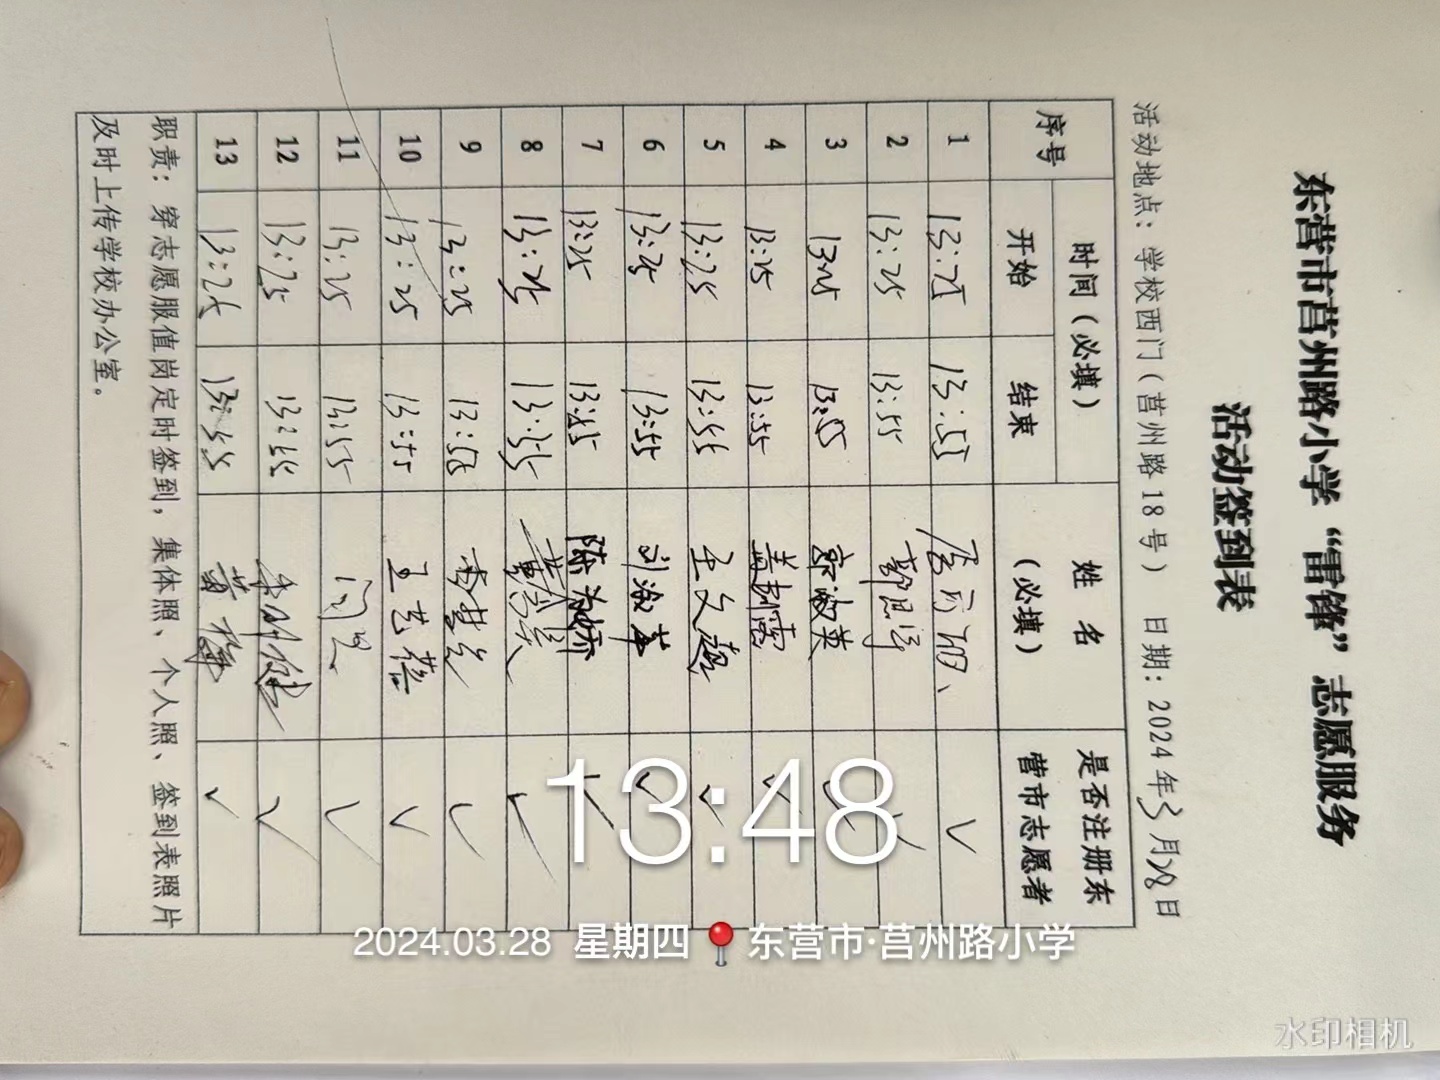 东营市莒州路小学“雷锋”志愿服务
活动签到表
活动地点：学校西门（莒州路18号） 日期：2024年3月28日
序号 时间（必填） 姓名（必填） 是否注册东营市志愿者
开始 结束
1 13:25 13:55 ✓
2 13:25 13:55 ✓
3 13:25 13:55 郭淑英 ✓
4 13:25 13:55 ✓
5 13:25 13:55 王文超 ✓
6 13:25 13:55 刘海苹 ✓
7 13:25 陈 ✓
8 13:25 13:55 ✓
9 13:25 13:55 ✓
10 13:25 13:55 王艺蓓 ✓
11 13:25 13:55 ✓
12 13:25 13:55 ✓
13 13:25 13:55 黄 ✓
职责：穿志愿服值岗定时签到，集体照、个人照、签到表照片
及时上传学校办公室。
13:48
2024.03.28 星期四 东营市·莒州路小学
水印相机